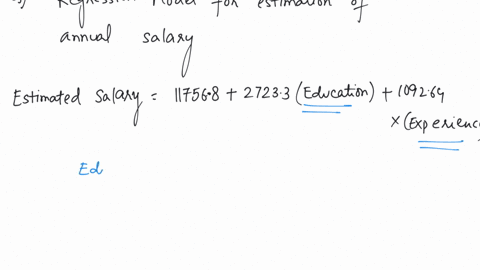 Regression Model for estimation of
annual salary
Estimated Salary = 11756.8 + 2723.3 (Education) + 1092.64
× (Experience
Ed